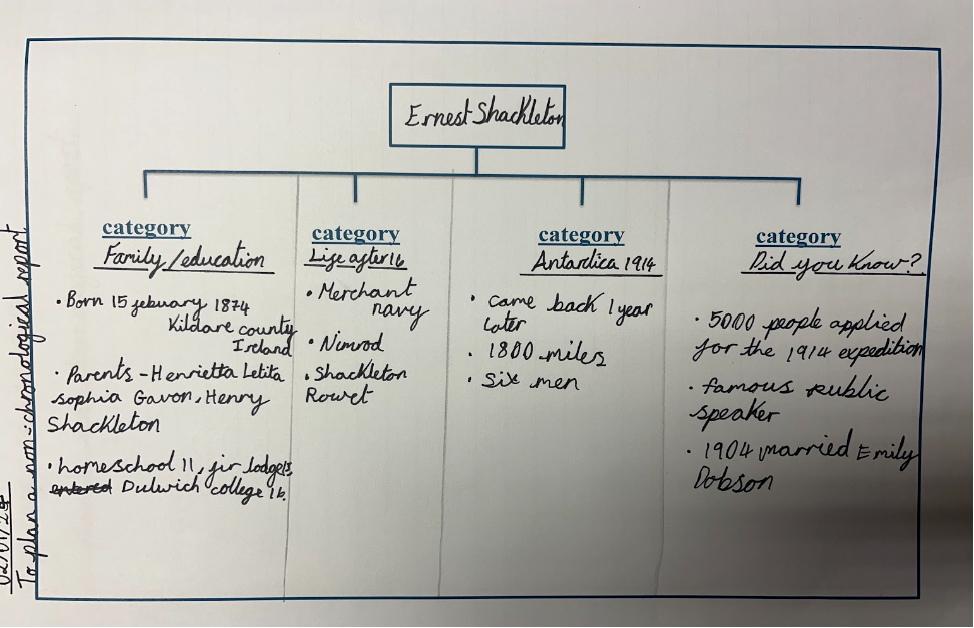 Ernest Shackleton
category
Family/education
• Born 15 febuary 1874
Kildare county
Ireland
• Parents - Henrietta Letita
sophia Gavon, Henry
Shackleton
• homeschool 11, fir lodge
entered Dulwich college 16.
category
Life after 16
• Merchant
navy
• Nimrod
• Shackleton
Rowet
category
Antardica 1914
• came back 1 year
later
• 1800 miles
• six men
category
Did you Know?
• 5000 people applied
for the 1914 expedition
• famous public
speaker
• 1904 married Emily
Dobson
To plan a non-chronological report.